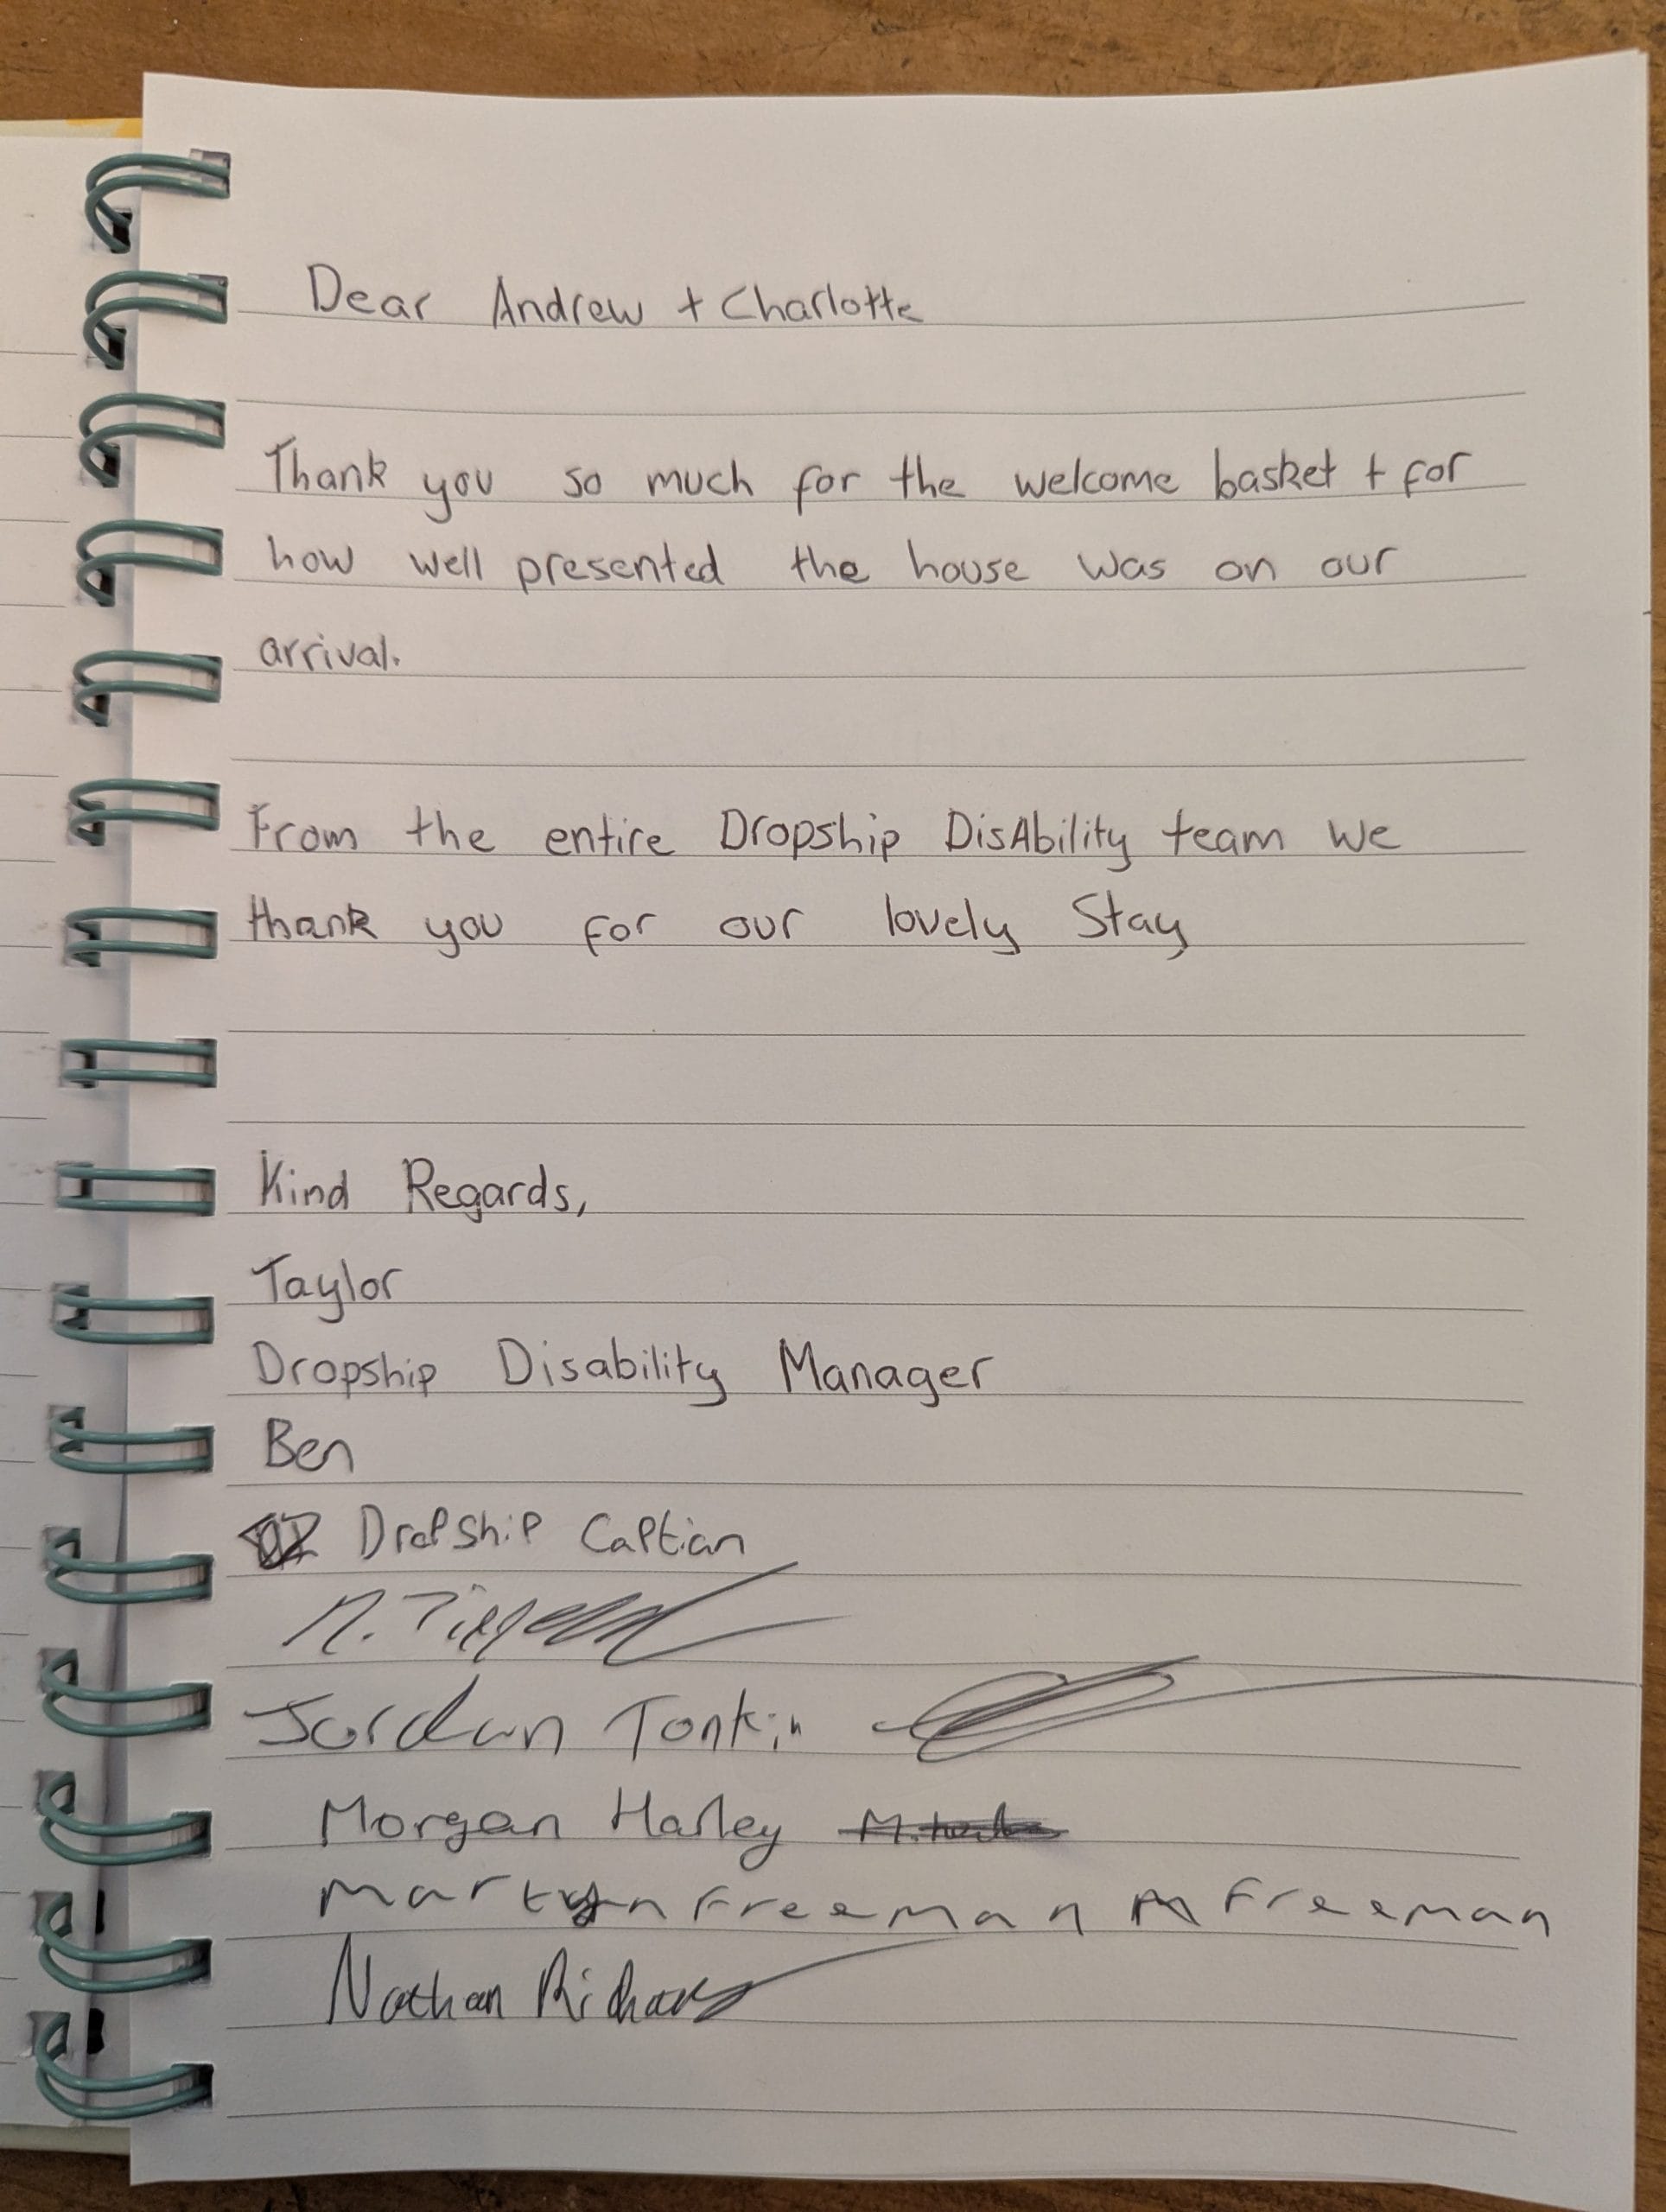 Dear Andrew + Charlotte
Thank you so much for the welcome basket + for
how well presented the house was on our
arrival.
From the entire Dropship DisAbility team we
thank you for our lovely Stay
Kind Regards,
Taylor
Dropship Disability Manager
Ben
DroPShiP CaPtian
Jordan Tonkin
Morgan Harley
Martyn Freeman M Freeman
Nathan Richards